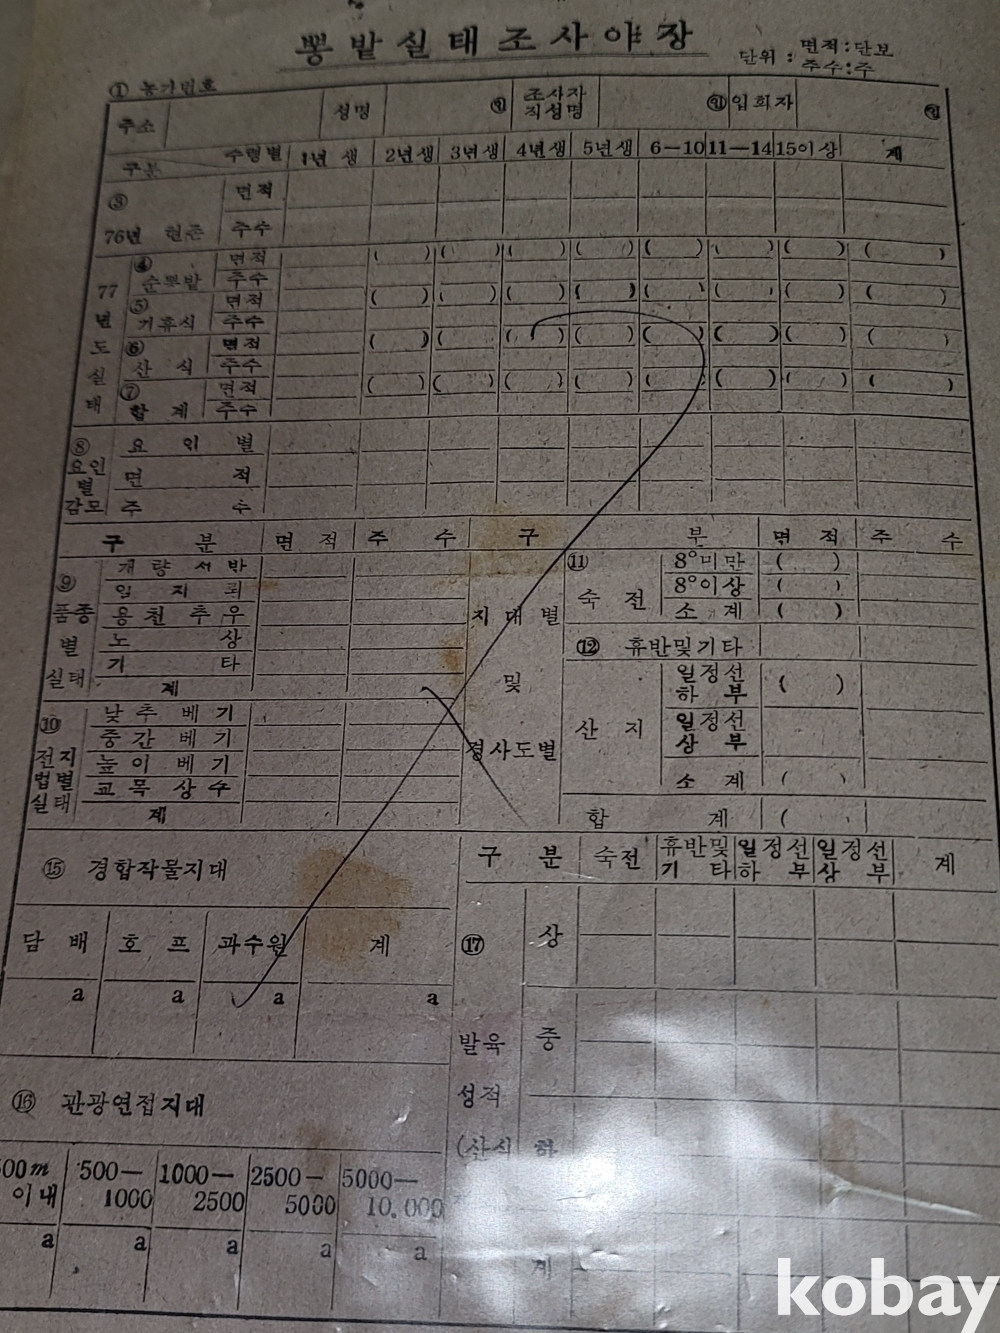 뽕밭실태조사야장
단위 : 면적:단보
주수:주
① 농가번호
주소 성명 ㊞ 조사자 직성명 ㊞ 입회자 ㊞
구분 수령별 1년생 2년생 3년생 4년생 5년생 6-10 11-14 15이상 계
③ 76년 현존 면적
주수
77년도실태
④ 순뽕밭 면적 ( ) ( ) ( ) ( ) ( ) ( ) ( ) ( )
주수
⑤ 거휴식 면적 ( ) ( ) ( ) ( ) ( ) ( ) ( ) ( )
주수
⑥ 산식 면적 ( ) ( ) ( ) ( ) ( ) ( ) ( ) ( )
주수
⑦ 합계 면적 ( ) ( ) ( ) ( ) ( ) ( ) ( ) ( )
주수
⑧ 요인별감모
요인별
면적
주수
구분 면적 주수 구분 면적 주수
⑨ 품종별실태
개량서반
일지뢰
용천추우
노상
기타
계
⑩ 전지법별실태
낮추베기
중간베기
높이베기
교목상수
계
지대별 및 경사도별
⑪ 숙전
8°미만 ( )
8°이상 ( )
소계 ( )
⑫ 휴반및기타
산지
일정선하부 ( )
일정선상부
소계 ( )
합계 ( )
⑮ 경합작물지대
담배 호프 과수원 계
a a a a
⑯ 관광연접지대
500m이내 500-1000 1000-2500 2500-5000 5000-10,000
a a a a a
구분 숙전 휴반및기타 일정선하부 일정선상부 계
⑰ 발육성적
(산식
상
중
하
계
kobay